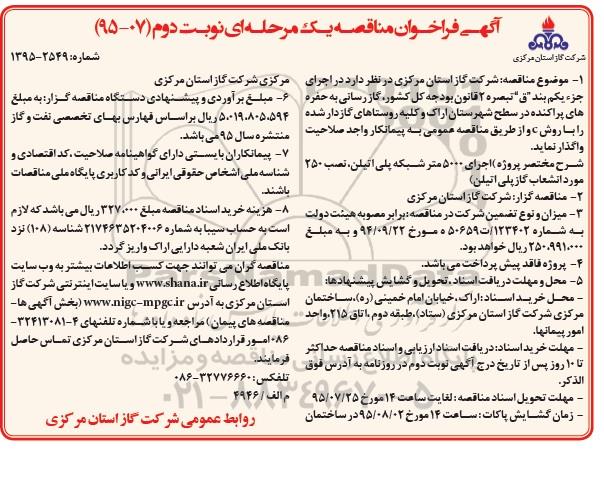 آگهی فراخوان مناقصه یک مرحله‌ای نوبت دوم (۰۷-۹۵)
شرکت گاز استان مرکزی
شماره: ۲۵۴۹-۱۳۹۵
۱- موضوع مناقصه: شرکت گاز استان مرکزی در نظر دارد در اجرای
جزء یکم بند "ق" تبصره ۲ قانون بودجه کل کشور، گازرسانی به حفره
های پراکنده در سطح شهرستان اراک و کلیه روستاهای گازدار شده
را با روش c و از طریق مناقصه عمومی به پیمانکار واجد صلاحیت
واگذار نماید.
شرح مختصر پروژه )اجرای ۵۰۰۰ متر شبکه پلی اتیلن، نصب ۲۵۰
مورد انشعاب گاز پلی اتیلن(
۲- مناقصه گزار: شرکت گاز استان مرکزی
۳- میزان و نوع تضمین شرکت در مناقصه: برابر مصوبه هیئت دولت
به شماره ۱۲۳۴۰۲/ت۵۰۶۵۹ ه مورخ ۹۴/۰۹/۲۲ و به مبلغ
۲۵۰.۹۹۱.۰۰۰ ریال خواهد بود.
۴- پروژه فاقد پیش پرداخت می باشد.
۵- محل و مهلت دریافت اسناد، تحویل و گشایش پیشنهادها:
- محل خرید اسناد: اراک، خیابان امام خمینی (ره)، ساختمان
مرکزی شرکت گاز استان مرکزی (ستاد)، طبقه دوم، اتاق ۲۱۵، واحد
امور پیمانها.
- مهلت خرید اسناد: دریافت اسناد ارزیابی و اسناد مناقصه حداکثر
تا ۱۰ روز پس از تاریخ درج آگهی نوبت دوم در روزنامه به آدرس فوق
الذکر.
- مهلت تحویل اسناد مناقصه: لغایت ساعت ۱۴ مورخ ۹۵/۰۷/۲۵
- زمان گشایش پاکات: ساعت ۱۴ مورخ ۹۵/۰۸/۰۲ در ساختمان
مرکزی شرکت گاز استان مرکزی
۶- مبلغ برآوردی و پیشنهادی دستگاه مناقصه گزار: به مبلغ
۵.۰۱۹.۸۰۵.۵۹۴ ریال براساس فهارس بهای تخصصی نفت و گاز
منتشره سال ۹۵ می باشد.
۷- پیمانکاران بایستی دارای گواهینامه صلاحیت، کد اقتصادی و
شناسه ملی اشخاص حقوقی ایرانی و کد کاربری پایگاه ملی مناقصات
باشند.
۸- هزینه خرید اسناد مناقصه مبلغ ۳۲۷.۰۰۰ ریال می باشد که لازم
است به حساب سیبا به شماره ۲۱۷۴۶۳۵۲۰۴۰۰۶ شناسه (۱۰۸) نزد
بانک ملی ایران شعبه دارایی اراک واریز گردد.
مناقصه گران می توانند جهت کسب اطلاعات بیشتر به وب سایت
پایگاه اطلاع رسانی www.shana.ir و یا سایت اینترنتی شرکت گاز
استان مرکزی به آدرس www.nigc-mpgc.ir (بخش آگهی ها-
مناقصه های پیمان) مراجعه و یا با شماره تلفنهای ۴-۳۲۴۱۳۰۸۱-
۰۸۶ امور قراردادهای شرکت گاز استان مرکزی تماس حاصل
فرمایند.
تلفکس: ۳۲۷۷۶۶۶۰-۰۸۶
م الف / ۴۹۴۶
روابط عمومی شرکت گاز استان مرکزی
۰۲۱-۸۸۳۴۹۶۷۰-۵